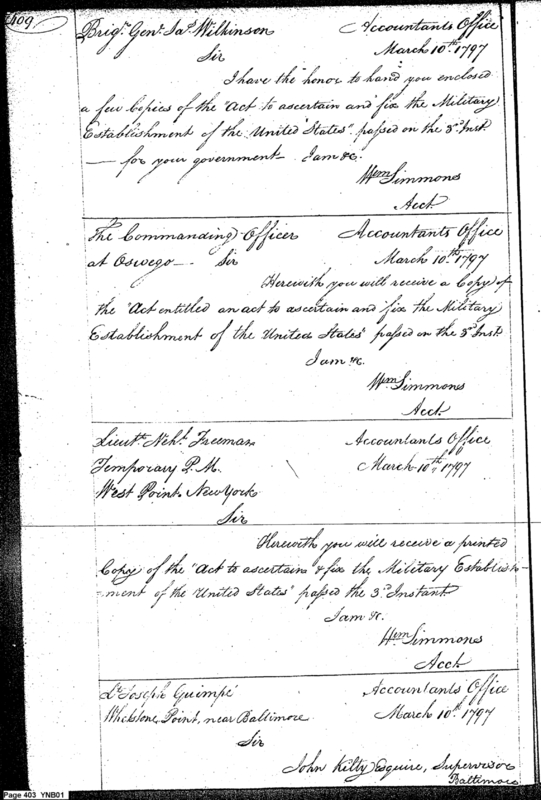 409
Brigr. Genl. Jas. Wilkinson Accountants Office
March 10th. 1797
Sir
I have the honor to hand you enclosed
a few Copies of the "Act to ascertain and fix the Military
Establishment of the United States" passed on the 3d. Inst.
— for your government — I am &c.
Wm Simmons
Acct.
The Commanding Officer Accountants Office
at Oswego — Sir March 10th. 1797
Herewith you will receive a Copy of
the "Act entitled an act to ascertain and fix the Military
Establishment of the United States" passed on the 3d. Inst.
I am &c.
Wm Simmons
Acct.
Lieutt. Nehh. Freeman Accountants Office
Temporary P.M. March 10th. 1797
West Point New York
Sir
Herewith you will receive a printed
Copy of the "Act to ascertain & fix the Military Establish-
ment of the United States" passed the 3d. Instant
I am &c.
Wm Simmons
Acct
Lt. Joseph Guimpé Accountants Office
Whetstone Point, near Baltimore March 10th. 1797
Sir
John Kilty Esquire, Supervisor
Baltimore
Page 403 YNB01